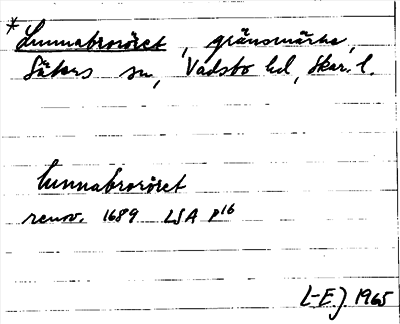 *Lunnabroröret, gränsmärke,
Säters sn, Vadsbo hd, Skar. l.
lunnabroröret
renov. 1689 LSA P16
L-EJ 1965